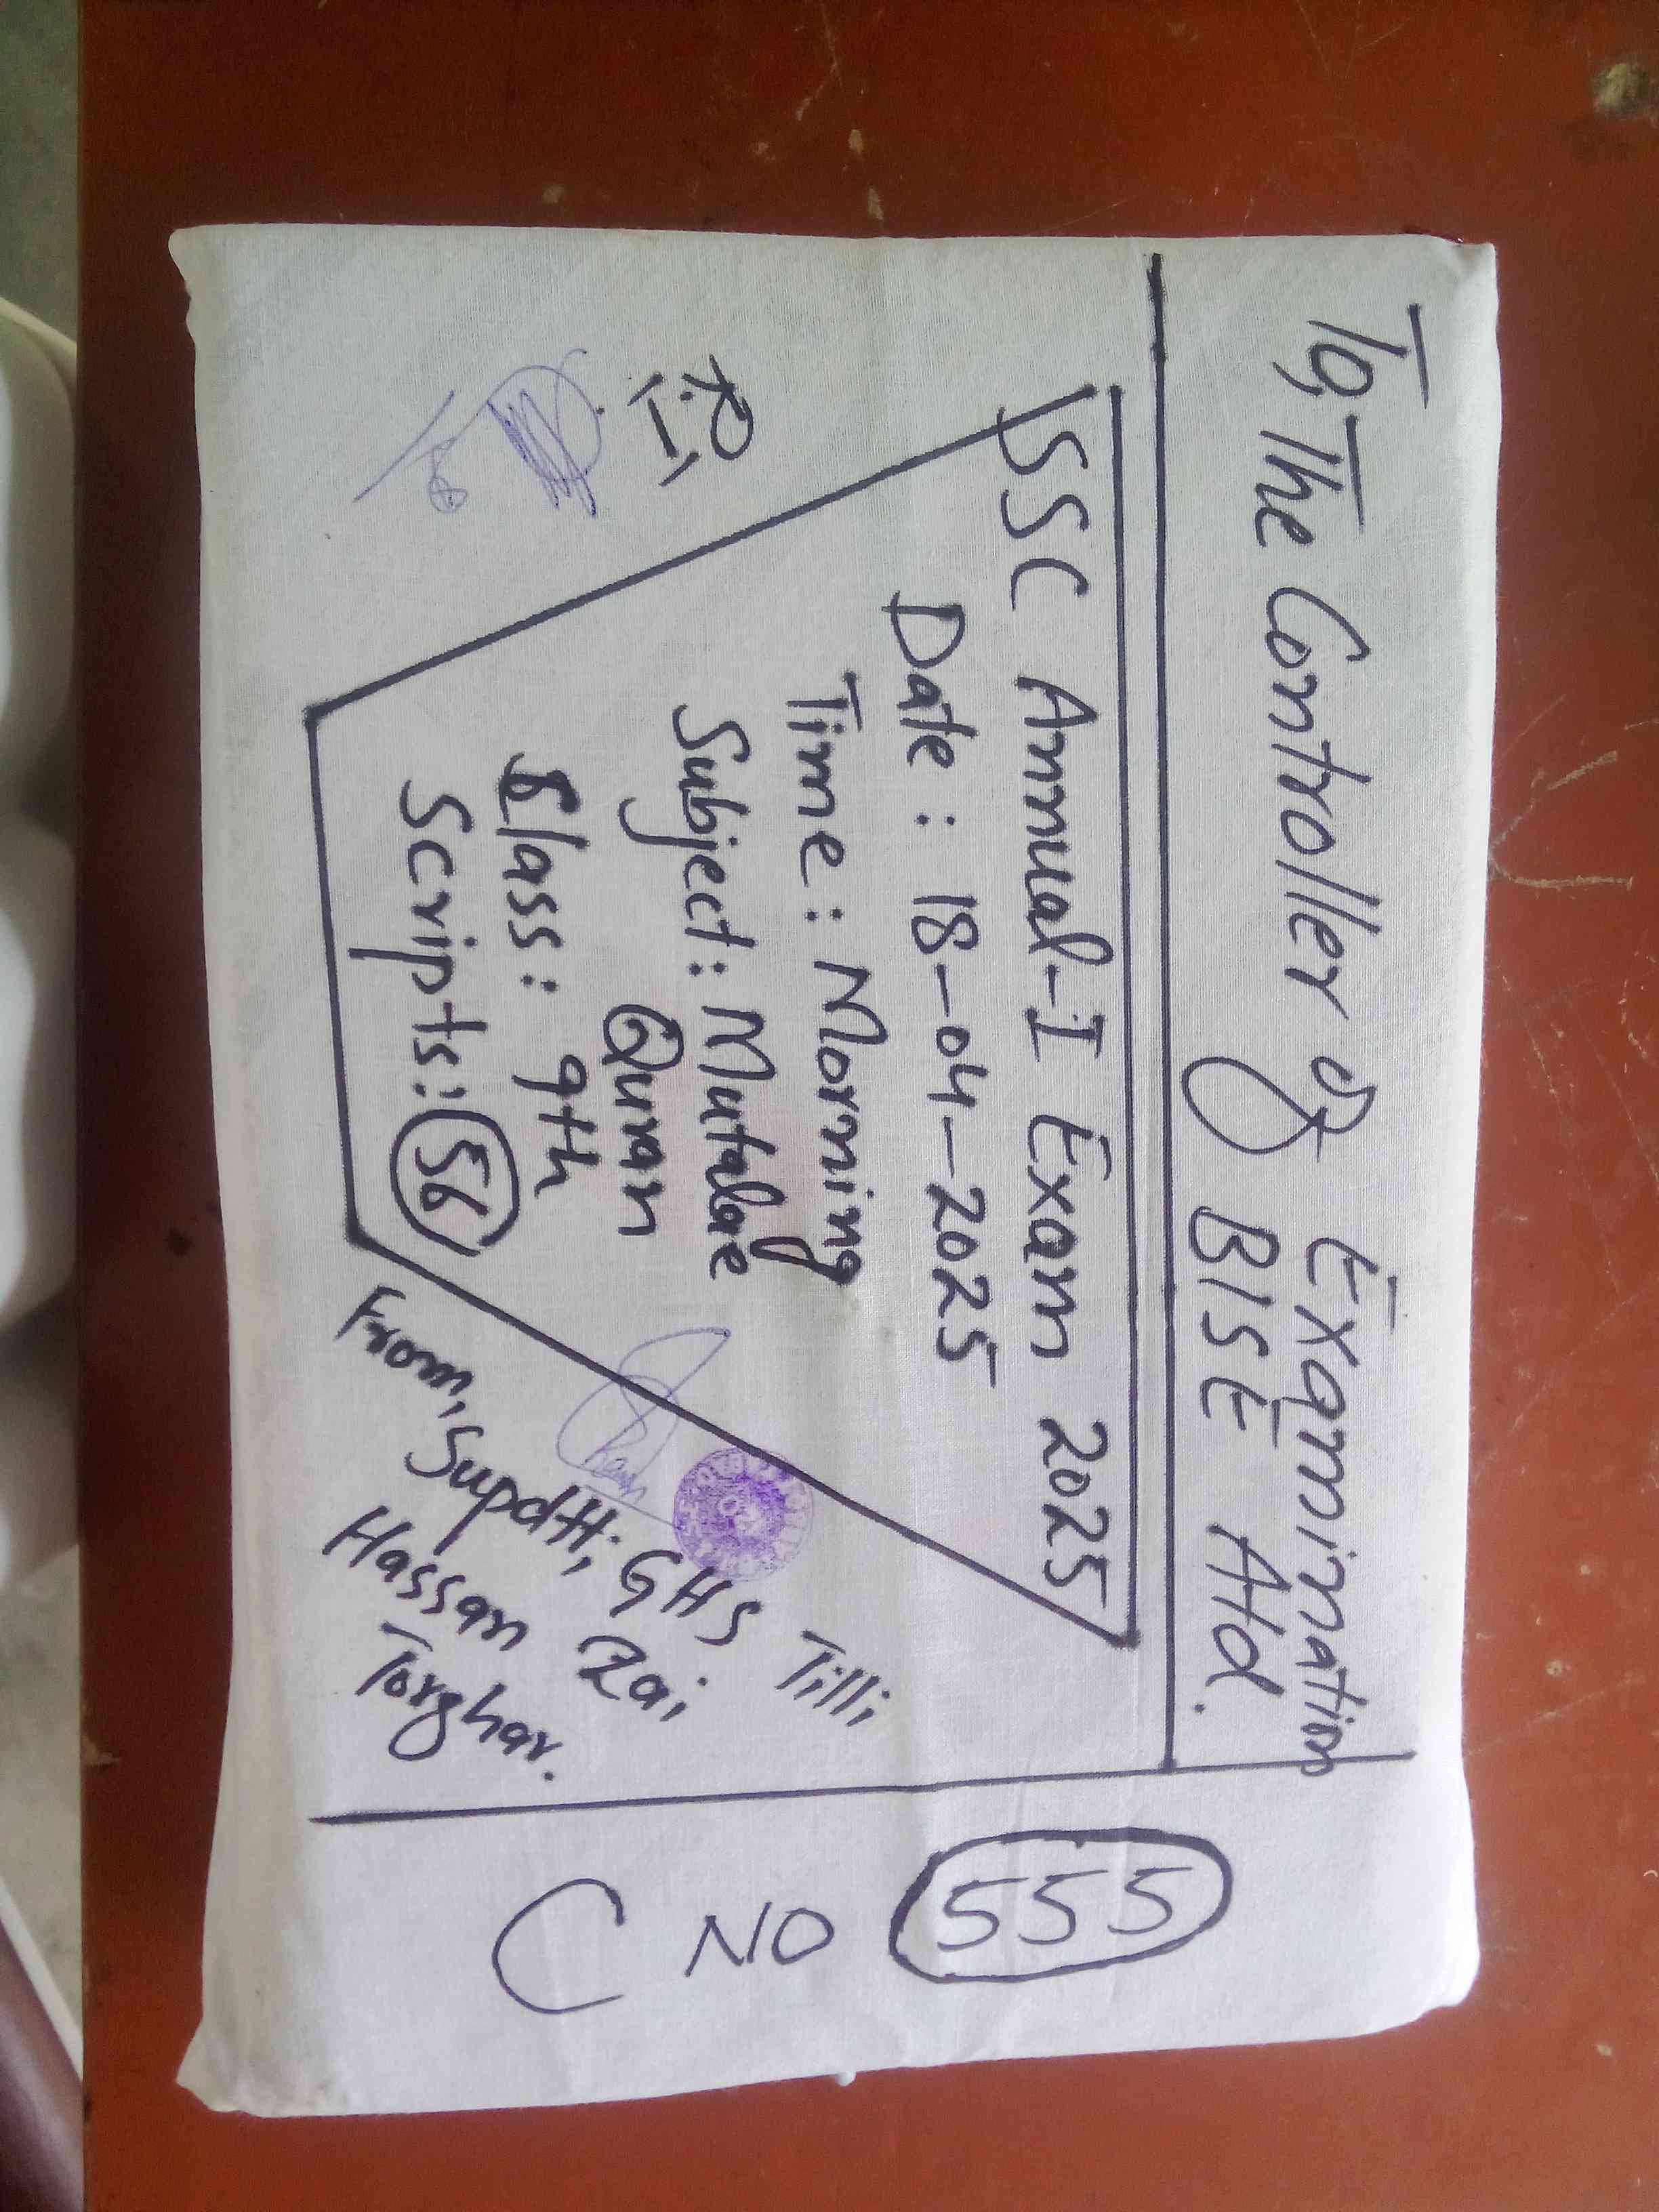 To The Controller of Examination
BISE Atd.
C NO 555
SSC Annual-I Exam 2025
Date: 18-04-2025
Time: Morning
Subject: Mutalae
Quran
Class: 9th
Scripts: 56
R.I
From, Supdtt; GHS Tilli
Hassan Zai
Torghar.